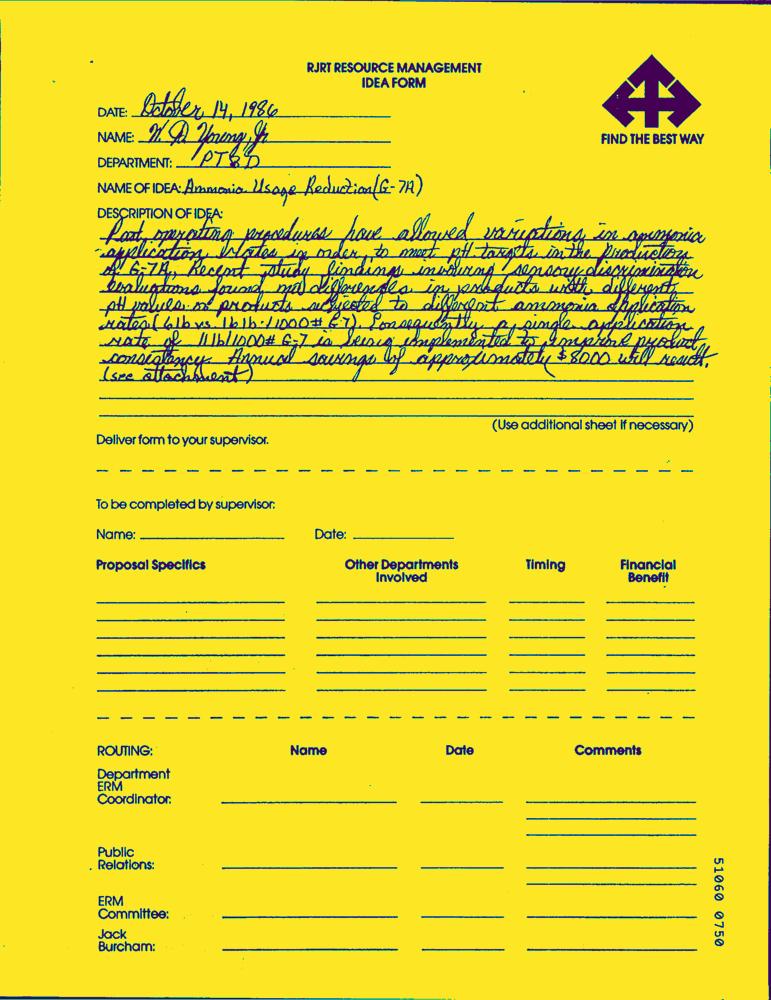 RJRT RESOURCE MANAGEMENT
IDEA FORM
FIND THE BEST WAY
DATE: October 14, 1986
NAME: W. D. Young, Jr
DEPARTMENT: PT&D
NAME OF IDEA: Ammonia Usage Reduction (G-7A)
DESCRIPTION OF IDEA:
Past operating procedures have allowed variations in ammonia
application rates in order to meet pH targets in the production
of G-7A. Recent study findings involving sensory discrimination
evaluations found no differences in products with different
pH values or products subjected to different ammonia application
rates (6 lb vs. 16 lb./1000# G-7). Consequently a single application
rate of 11 lb/1000# G-7 is being implemented to improve product
consistancy. Annual savings of approximately $8000 will result.
(see attachment)
(Use additional sheet if necessary)
Deliver form to your supervisor.
To be completed by supervisor:
Name: Date:
Proposal Specifics Other Departments Involved Timing Financial Benefit
ROUTING: Name Date Comments
Department
ERM
Coordinator:
Public
Relations:
ERM
Committee:
Jack
Burcham:
51060 0750